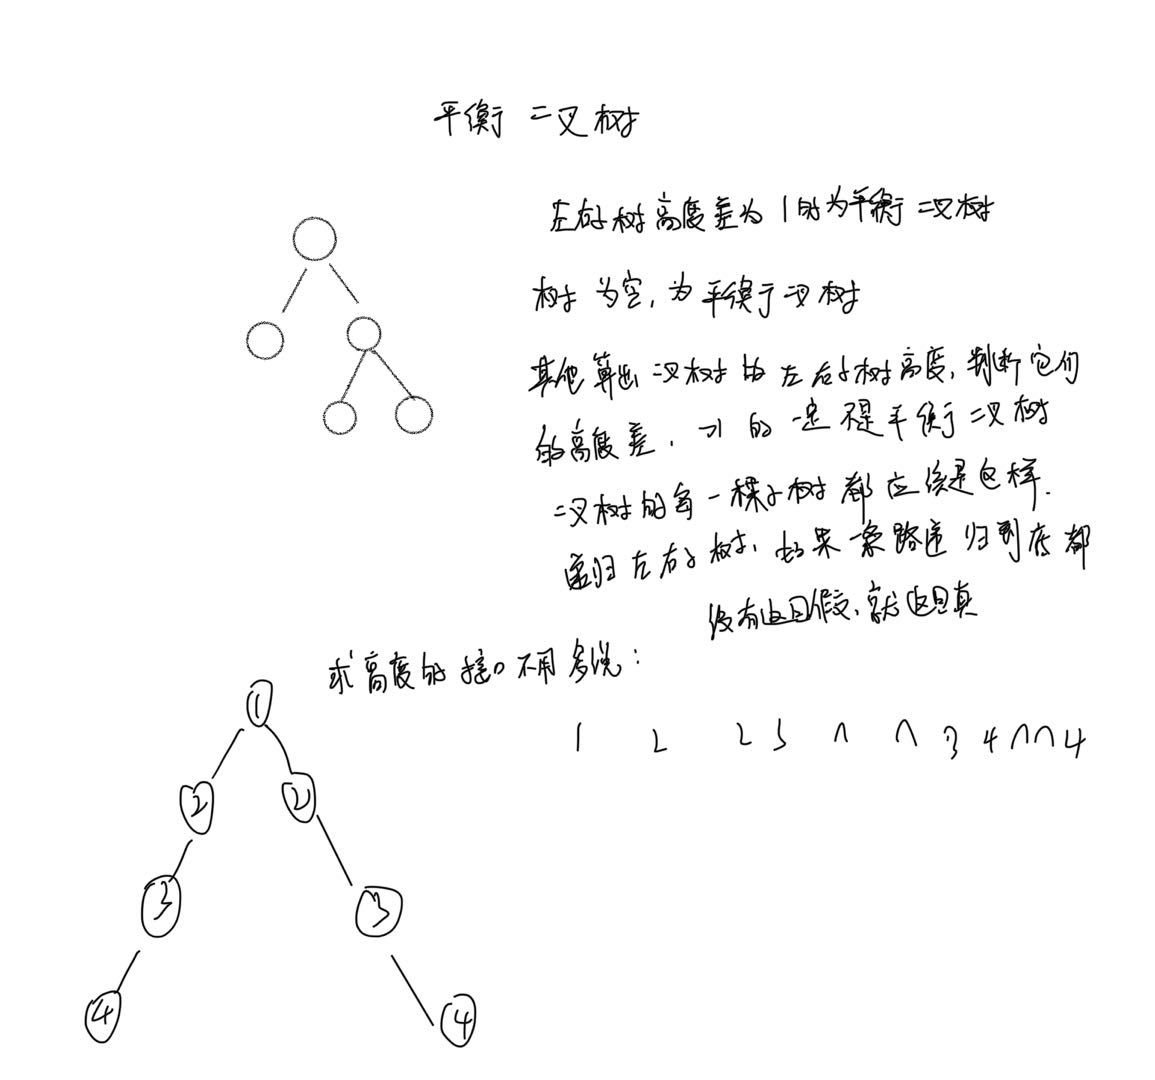 平衡二叉树
左右子树高度差为1的为平衡二叉树
树为空,为平衡二叉树
其他算出二叉树的左右子树高度,判断它们
的高度差,>1的一定不是平衡二叉树
二叉树的每一棵子树都应该是这样.
递归左右子树,如果一条路递归到底都
没有返回假,就返回真
求高度的接口不用多说:
1 2 2 3 n n 3 4 n n 4
1
2 2
3 3
4 4